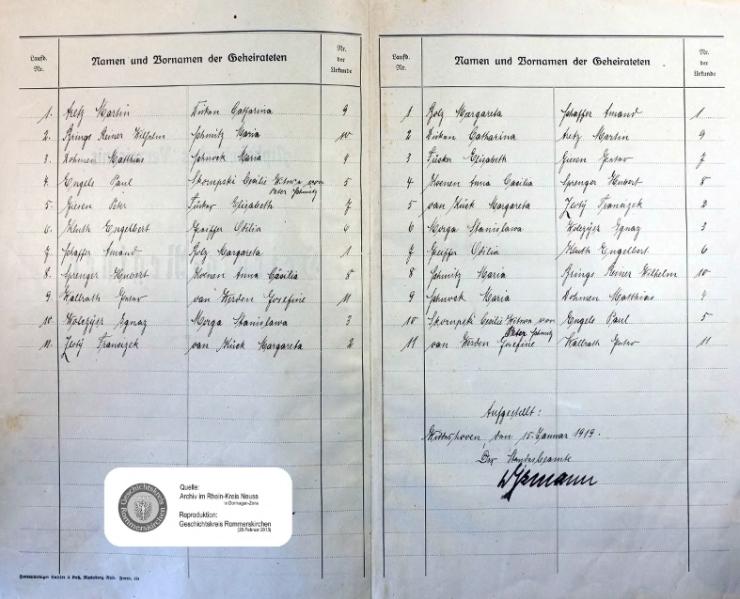 Laufd. Nr. Namen und Vornamen der Geheirateten Nr. der Urkunde
1. Aretz Martin Dükan Catharina 9
2. Brings Reiner Wilhelm Schmitz Maria 10
3. Dohmen Matthias Schnock Maria 4
4. Engels Paul Skompski Cecilie Witwe von Peter Schmitz 5
5. Giesen Peter Fücker Elisabeth 7
6. Kluth Engelbert Pfeiffer Odilia 6
7. Schaffer Amand Rotz Margareta 1
8. Sprenger Hubert Koenen Anna Cäcilia 8
9. Wallrath Gustav van Werden Josefine 11
10. Ignaz Morga Stanislawa 3
11. Franciszek van Kück Margareta 2
Laufd. Nr. Namen und Vornamen der Geheirateten Nr. der Urkunde
1 Rotz Margareta Schaffer Amand 1
2 Dükan Catharina Aretz Martin 9
3 Fücker Elisabeth Giesen 7
4 Koenen Anna Cäcilia Sprenger Hubert 8
5 van Kück Margareta Franciszek 2
6 Morga Stanislawa Ignaz 3
7 Pfeiffer Odilia Kluth Engelbert 6
8 Schmitz Maria Brings Reiner Wilhelm 10
9 Schnock Maria Dohmen Matthias 4
10 Skompski Cecilie Witwe von Peter Schmitz Engels Paul 5
11 van Werden Josefine Wallrath Gustav 11
Aufgestellt:
den 15. Januar 1919.
Der Standesbeamte
Quelle:
Archiv im Rhein-Kreis Neuss
in Dormagen-Zons
Reproduktion:
Geschichtskreis Rommerskirchen
(28.Februar 2013)
Geschichtskreis Rommerskirchen